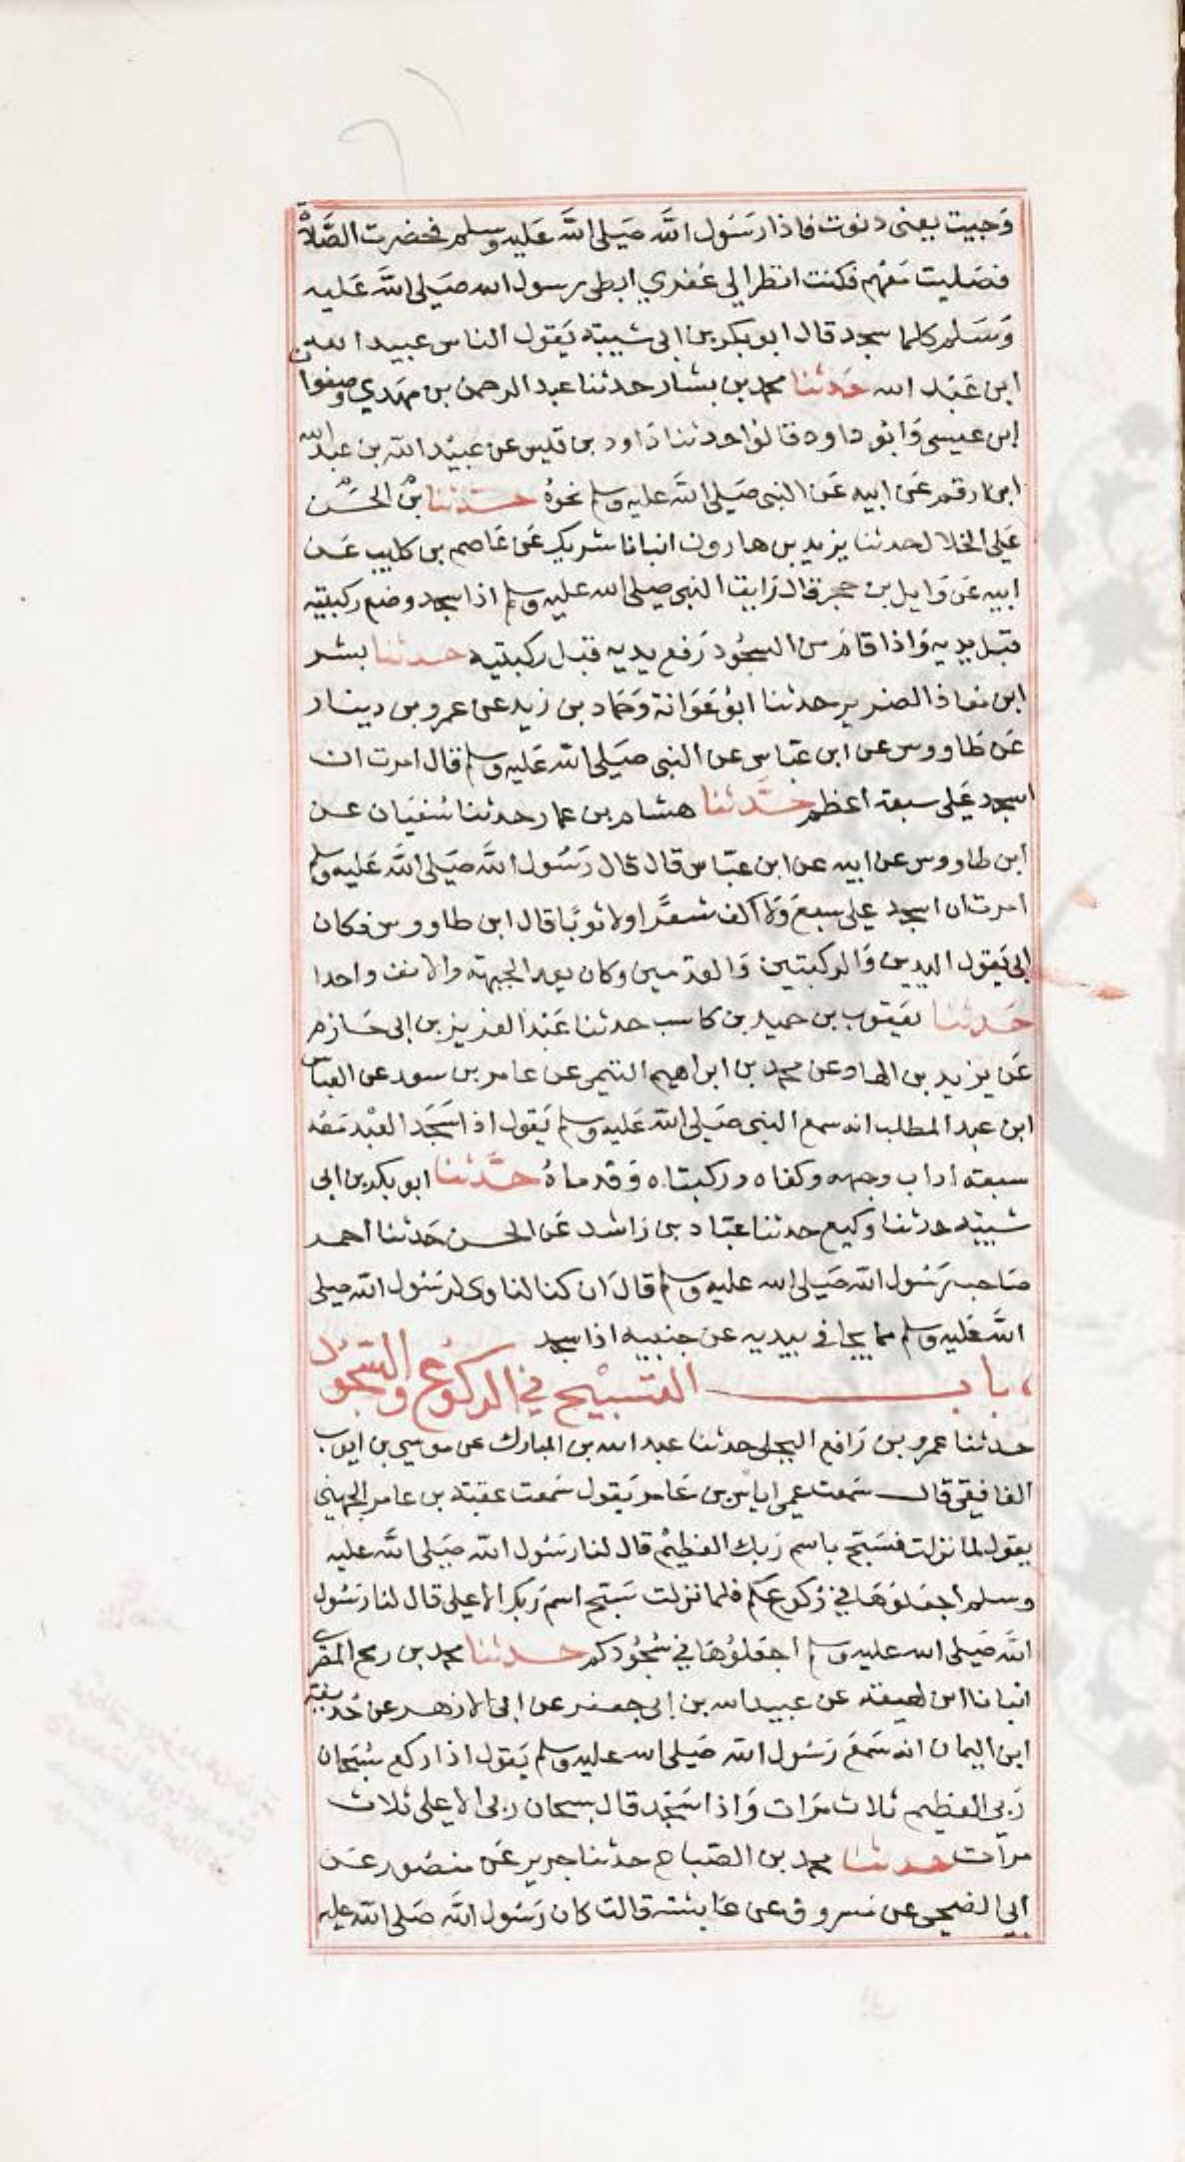 وجيت يعني دنوت فاذا رسول الله صلى الله عليه وسلم فحضرت الصلاة
فصليت معهم فكنت انظر الى عفري ابطي رسول الله صلى الله عليه
وسلم كلما سجد قال ابو بكر بن ابي شيبة يقول الناس عبيد الله بن
ابن عبد الله حدثنا محمد بن بشار حدثنا عبد الرحمن بن مهدي وصفوا
ابن عيسى وابو داود قالوا حدثنا داود بن قيس عن عبيد الله بن عبد الله
ابن ارقم عن ابيه عن النبي صلى الله عليه وسلم نحوه حدثنا بن الحسن
علي الخلال حدثنا يزيد بن هارون انبانا شريك عن عاصم بن كليب عن
ابيه عن وايل بن حجر قال رايت النبي صلى الله عليه وسلم اذا سجد وضع ركبتيه
قبل يديه واذا قام من السجود رفع يديه قبل ركبتيه حدثنا بشر
ابن معاذ الضرير حدثنا ابو عوانة وحماد بن زيد عن عمرو بن دينار
عن طاووس عن ابن عباس عن النبي صلى الله عليه وسلم قال امرت ان
اسجد على سبعة اعظم حدثنا هشام بن عمار حدثنا سفيان عن
ابن طاووس عن ابيه عن ابن عباس قال قال رسول الله صلى الله عليه وسلم
امرت ان اسجد على سبع ولا اكف شعرا ولا ثوبا قال ابن طاووس فكان
ابي يقول اليدين والركبتين والقدمين وكان يعد الجبهة والانف واحدا
حدثنا يعقوب بن حميد بن كاسب حدثنا عبد العزيز بن ابي حازم
عن يزيد بن الهاد عن محمد بن ابراهيم التيمي عن عامر بن سعد عن العباس
ابن عبد المطلب انه سمع النبي صلى الله عليه وسلم يقول اذا سجد العبد معه
سبعة اداب وجهه وكفاه وركبتاه وقدماه حدثنا ابو بكر بن ابي
شيبة حدثنا وكيع حدثنا عباد بن راشد عن الحسن حدثنا احمد
صاحب رسول الله صلى الله عليه وسلم قال ان كنا لناوى لرسول الله صلى
الله عليه وسلم مما يجافي بيديه عن جنبيه اذا سجد
باب التسبيح في الركوع والسجود
حدثنا عمرو بن رافع البجلي حدثنا عبد الله بن المبارك عن موسى بن ايوب
الغافقي قال سمعت عمي اياس بن عامر يقول سمعت عقبة بن عامر الجهني
يقول لما نزلت فسبح باسم ربك العظيم قال لنا رسول الله صلى الله عليه
وسلم اجعلوها في ركوعكم فلما نزلت سبح اسم ربك الاعلى قال لنا رسول
الله صلى الله عليه وسلم اجعلوها في سجودكم حدثنا محمد بن رمح المصري
انبانا ابن لهيعة عن عبيد الله بن ابي جعفر عن ابي الازهر عن حذيفة
ابن اليمان انه سمع رسول الله صلى الله عليه وسلم يقول اذا ركع سبحان
ربي العظيم ثلاث مرات واذا سجد قال سبحان ربي الاعلى ثلاث
مرات حدثنا محمد بن الصباح حدثنا جرير عن منصور عن
ابي الضحى عن مسروق عن عايشة قالت كان رسول الله صلى الله عليه